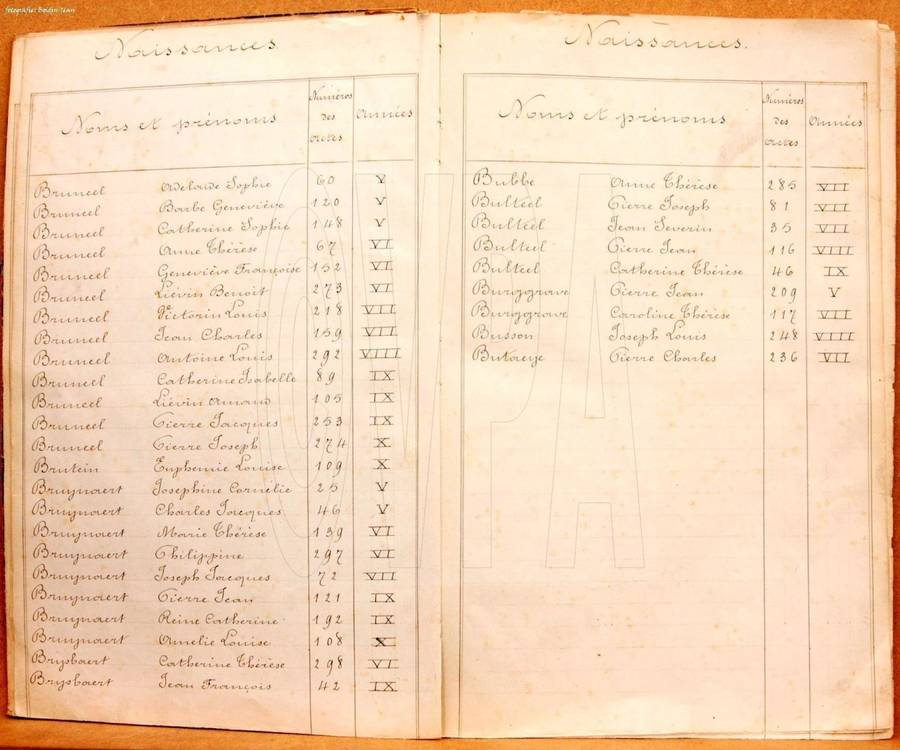 fotografie: Boidin Jean
Naissances.
Noms et prénoms Numéros des actes Années
Bruneel Adelaïde Sophie 60 V
Bruneel Barbe Geneviève 120 V
Bruneel Catherine Sophie 148 V
Bruneel Anne Thérèse 67 VI
Bruneel Geneviève Françoise 152 VI
Bruneel Liévin Benoit 273 VI
Bruneel Victorin Louis 218 VII
Bruneel Jean Charles 159 VII
Bruneel Antoine Louis 292 VIII
Bruneel Catherine Isabelle 89 IX
Bruneel Liévin Amand 105 IX
Bruneel Pierre Jacques 253 IX
Bruneel Pierre Joseph 274 X
Brutein Euphemie Louise 109 X
Bruynaert Josephine Cornélie 25 V
Bruynaert Charles Jacques 46 V
Bruynaert Marie Thérèse 139 VI
Bruynaert Philippine 297 VI
Bruynaert Joseph Jacques 72 VII
Bruynaert Pierre Jean 121 IX
Bruynaert Reine Catherine 192 IX
Bruynaert Amelie Louise 108 X
Brysbaert Catherine Thérèse 298 VI
Brysbaert Jean François 42 IX
Naissances.
Noms et prénoms Numéros des actes Années
Bubbe Anne Thérèse 285 VII
Bulteel Pierre Joseph 81 VII
Bulteel Jean Severin 35 VII
Bulteel Pierre Jean 116 VIII
Bulteel Catherine Thérèse 46 IX
Burggrave Pierre Jean 209 V
Burggrave Caroline Thérèse 117 VII
Busson Joseph Louis 248 VIII
Butaeye Pierre Charles 236 VII